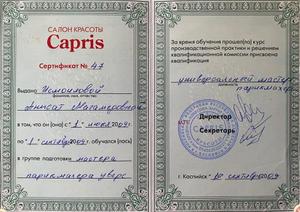 САЛОН КРАСОТЫ
Capris
Сертификат № 47
Выдано Исмаиловой
фамилия, имя, отчество
Магамедовной
в том, что он (она) с "1" июля 2009г
по "1" сентября 2009г. обучался (лась)
в группе подготовки мастера
парикмахера универс
За время обучения прошел(ла) курс
производственной практики и решением
квалификационной комиссии присвоена
квалификация
универсальный мастер
должность
парикмахер
Директор
Секретарь
г. Каспийск "10" сентября 2009г